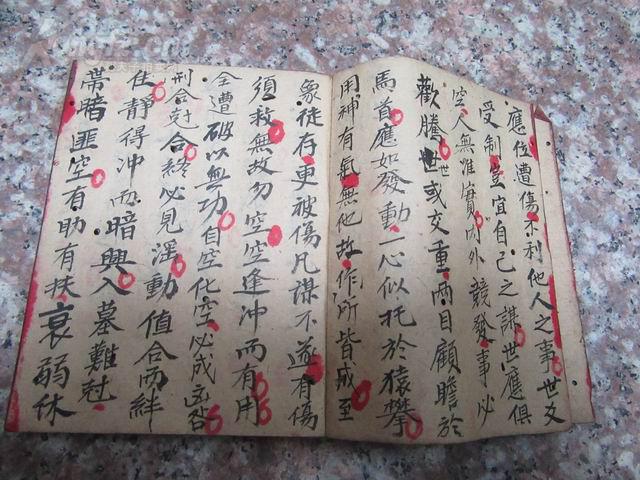 應位遭傷不利他人之事世爻
受制豈宜自己之謀世應俱
空人無准實內外競發事必
歡騰世或交重両目顧瞻於
馬首應如發動一心似托於猿攀
用神有氣無他故作所皆成至
象徒存更被傷凡謀不遂有傷
須救無故勿空空逢冲而有用
全遭破以無功自空化空必成凶咎
刑合尅合終必見滛動值合而絆
住靜得冲而暗興入墓難尅
帶暗匪空有助有扶衰弱休